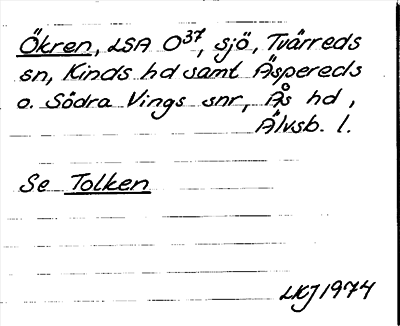 Ökren, LSA O37, sjö, Tvärreds
sn, Kinds hd samt Äspereds
o. Södra Vings snr, Ås hd,
Älvsb. l.
Se Tolken
LKJ 1974